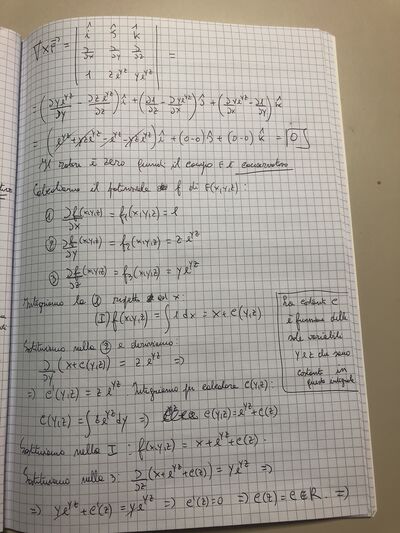 ∇×F⃗ = | î ĵ k̂ |
| ∂/∂x ∂/∂y ∂/∂z | =
| 1 z e^{yz} y e^{yz} |
= (∂y e^{yz}/∂y − ∂z e^{yz}/∂z) î + (∂1/∂z − ∂y e^{yz}/∂x) ĵ + (∂z e^{yz}/∂x − ∂1/∂y) k̂
= (e^{yz} + yz e^{yz} − e^{yz} − yz e^{yz}) î + (0−0) ĵ + (0−0) k̂ = 0
Il rotore è zero quindi il campo è conservativo
Calcoliamo il potenziale f di F(x,y,z):
① ∂f/∂x (x,y,z) = f₁(x,y,z) = 1
② ∂f/∂y (x,y,z) = f₂(x,y,z) = z e^{yz}
③ ∂f/∂z (x,y,z) = f₃(x,y,z) = y e^{yz}
Integriamo la ① rispetto ad x:
(I) f(x,y,z) = ∫ 1 dx = x + c(y,z)
La costante c
è funzione delle
sole variabili
y e z che sono
costanti in
questo integrale
Sostituiamo nella ② e deriviamo:
∂/∂y (x + c(y,z)) = z e^{yz} ⇒
⇒ c'(y,z) = z e^{yz} Integriamo per calcolare c(y,z):
c(y,z) = ∫ z e^{yz} dy ⇒ c(y,z) = e^{yz} + c(z)
Sostituiamo nella I: f(x,y,z) = x + e^{yz} + c(z).
Sostituiamo nella 3: ∂/∂z (x + e^{yz} + c(z)) = y e^{yz} ⇒
⇒ y e^{yz} + c'(z) = y e^{yz} ⇒ c'(z) = 0 ⇒ c(z) = c ∈ R. ⇒